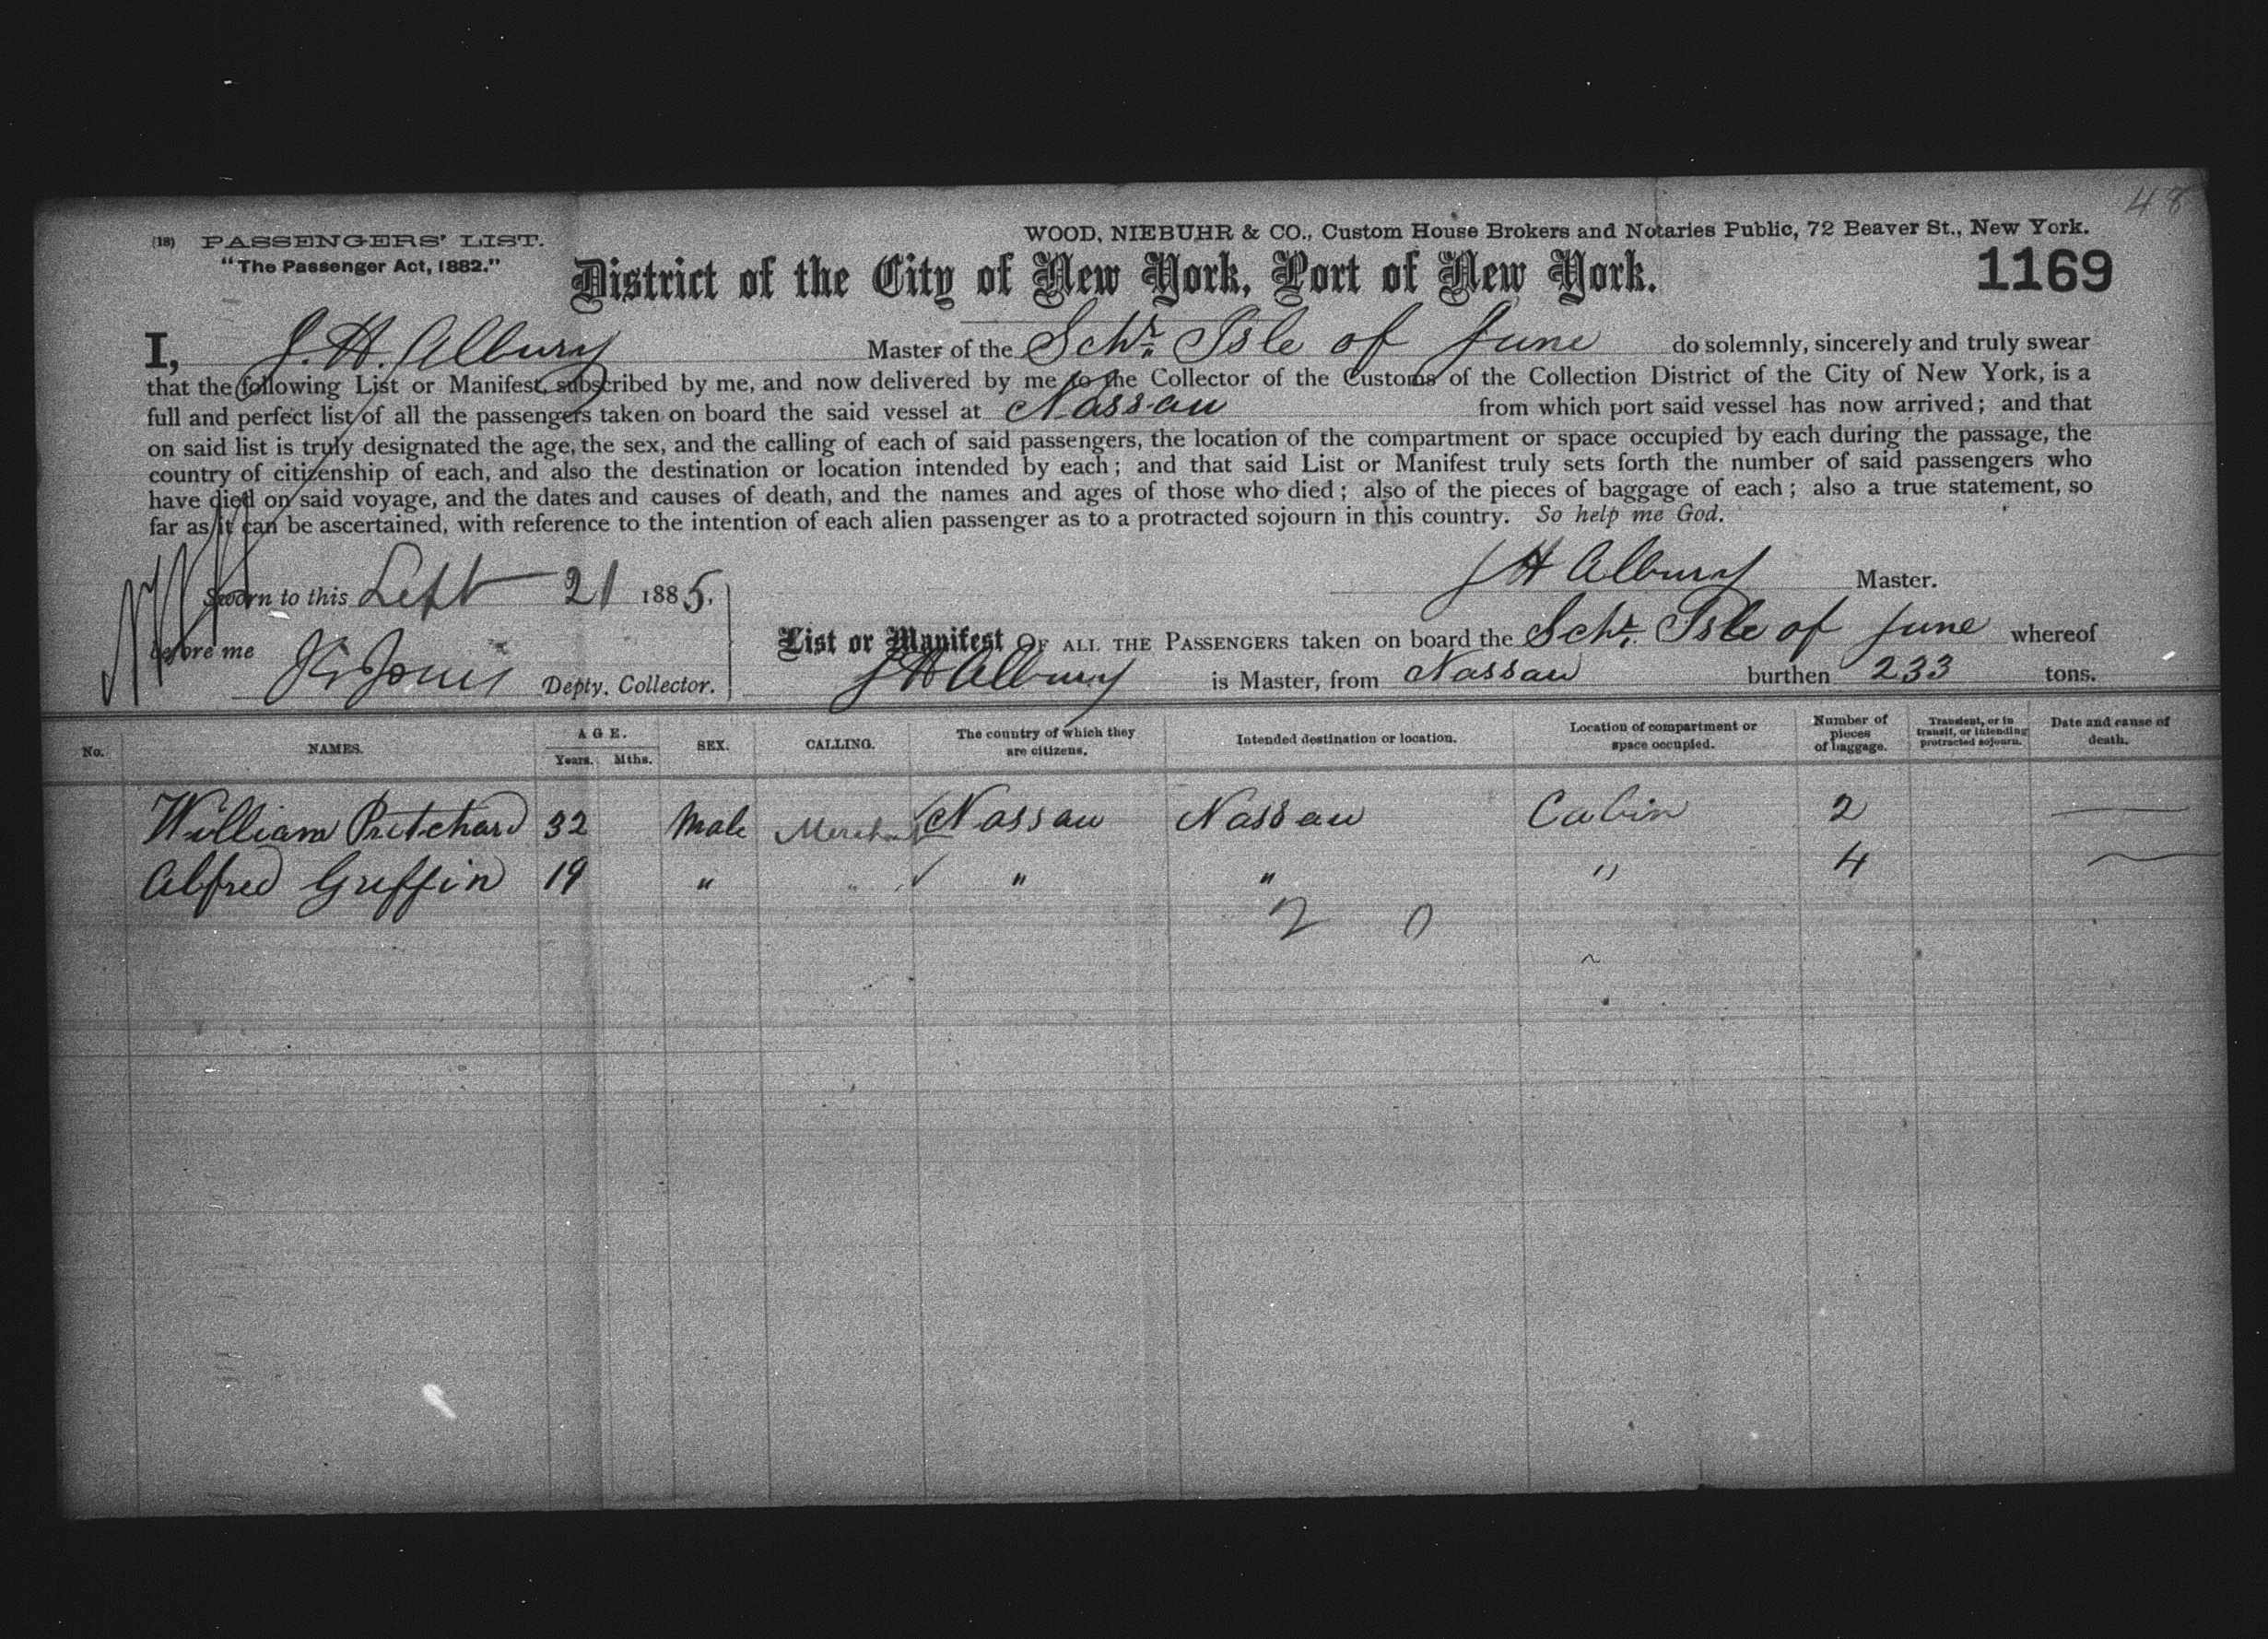 48
(18) PASSENGERS' LIST.
"The Passenger Act, 1882."
WOOD, NIEBUHR & CO., Custom House Brokers and Notaries Public, 72 Beaver St., New York.
District of the City of New York, Port of New York.
1169
I, J. H. Albury Master of the Schr. Isle of June do solemnly, sincerely and truly swear
that the following List or Manifest, subscribed by me, and now delivered by me to the Collector of the Customs of the Collection District of the City of New York, is a
full and perfect list of all the passengers taken on board the said vessel at Nassau from which port said vessel has now arrived; and that
on said list is truly designated the age, the sex, and the calling of each of said passengers, the location of the compartment or space occupied by each during the passage, the
country of citizenship of each, and also the destination or location intended by each; and that said List or Manifest truly sets forth the number of said passengers who
have died on said voyage, and the dates and causes of death, and the names and ages of those who died; also of the pieces of baggage of each; also a true statement, so
far as it can be ascertained, with reference to the intention of each alien passenger as to a protracted sojourn in this country. So help me God.
Sworn to this Sept 21 1885.
J H Albury Master.
before me
Depty. Collector.
List or Manifest OF ALL THE PASSENGERS taken on board the Schr. Isle of June whereof
J H Albury is Master, from Nassau burthen 233 tons.
No. NAMES. AGE. Years. Mths. SEX. CALLING. The country of which they are citizens. Intended destination or location. Location of compartment or space occupied. Number of pieces of baggage. Transient, or in transit, or intending protracted sojourn. Date and cause of death.
William Pritchard 32 Male Merchant Nassau Nassau Cabin 2 —
Alfred Griffin 19 " " " " " 4 —
2 0